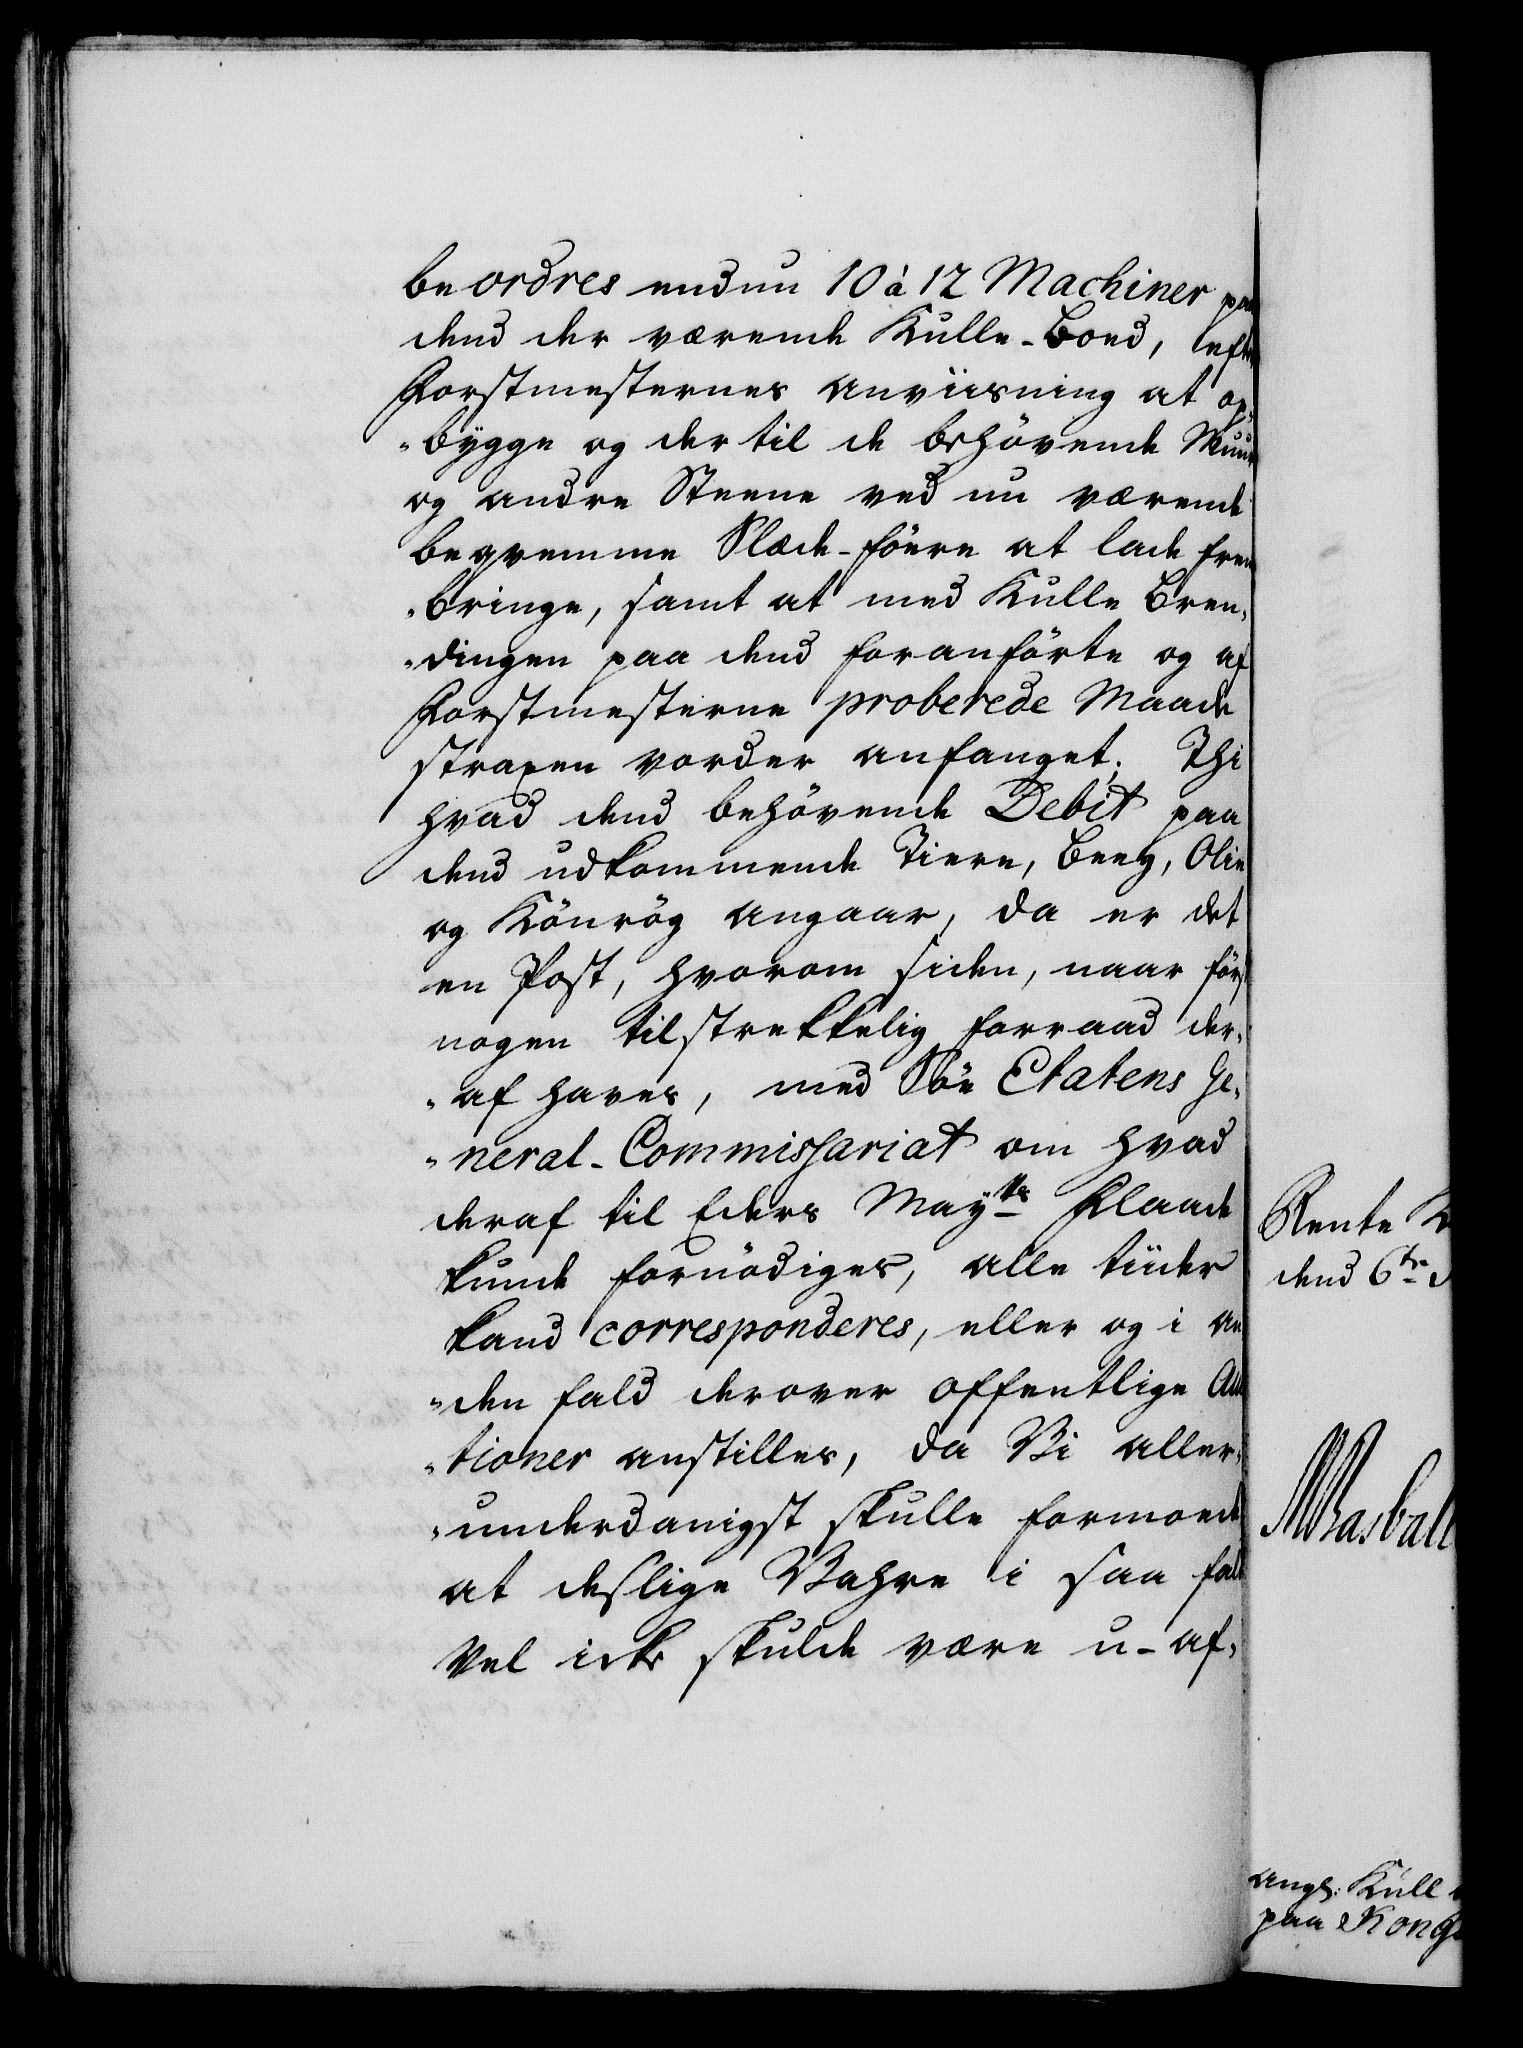 beordres endnu 10 à 12 Machiner paa
dend der værende Kulle-Boed, efter
Forstmesternes Anviisning at op¬
"bygge og der til de behövende Muur
og andre Steene ved nu værende
beqvemme Slæde-föere at lade frem
"bringe, samt at med Kulle Bren¬
"dingen paa dend foranförte og af
Forstmesterne proberede Maade
straxen vorder anfanget; Thi
hvad dend behövende Debit paa
dend udkommende Tiere, Beeg, Olie
og Könrög angaar, da er det
en Post, hvorom siden, naar först
nogen tilstrekkelig forraad der¬
"af haves, med Söe Etatens Ge¬
"neral-Commissariat om hvad
deraf til Eders Mayts Flaade
kunde fornödiges, alle tiider
kand corresponderes, eller og i an
"den fald derover offentlige Auc
"tioner anstilles, da Vi aller¬
"underdanigst skulle formoede
at deslige Vahre i saa fald
vel icke skulde være u-af¬
Rente K
dend 6te
angl: Kull
paa Kong